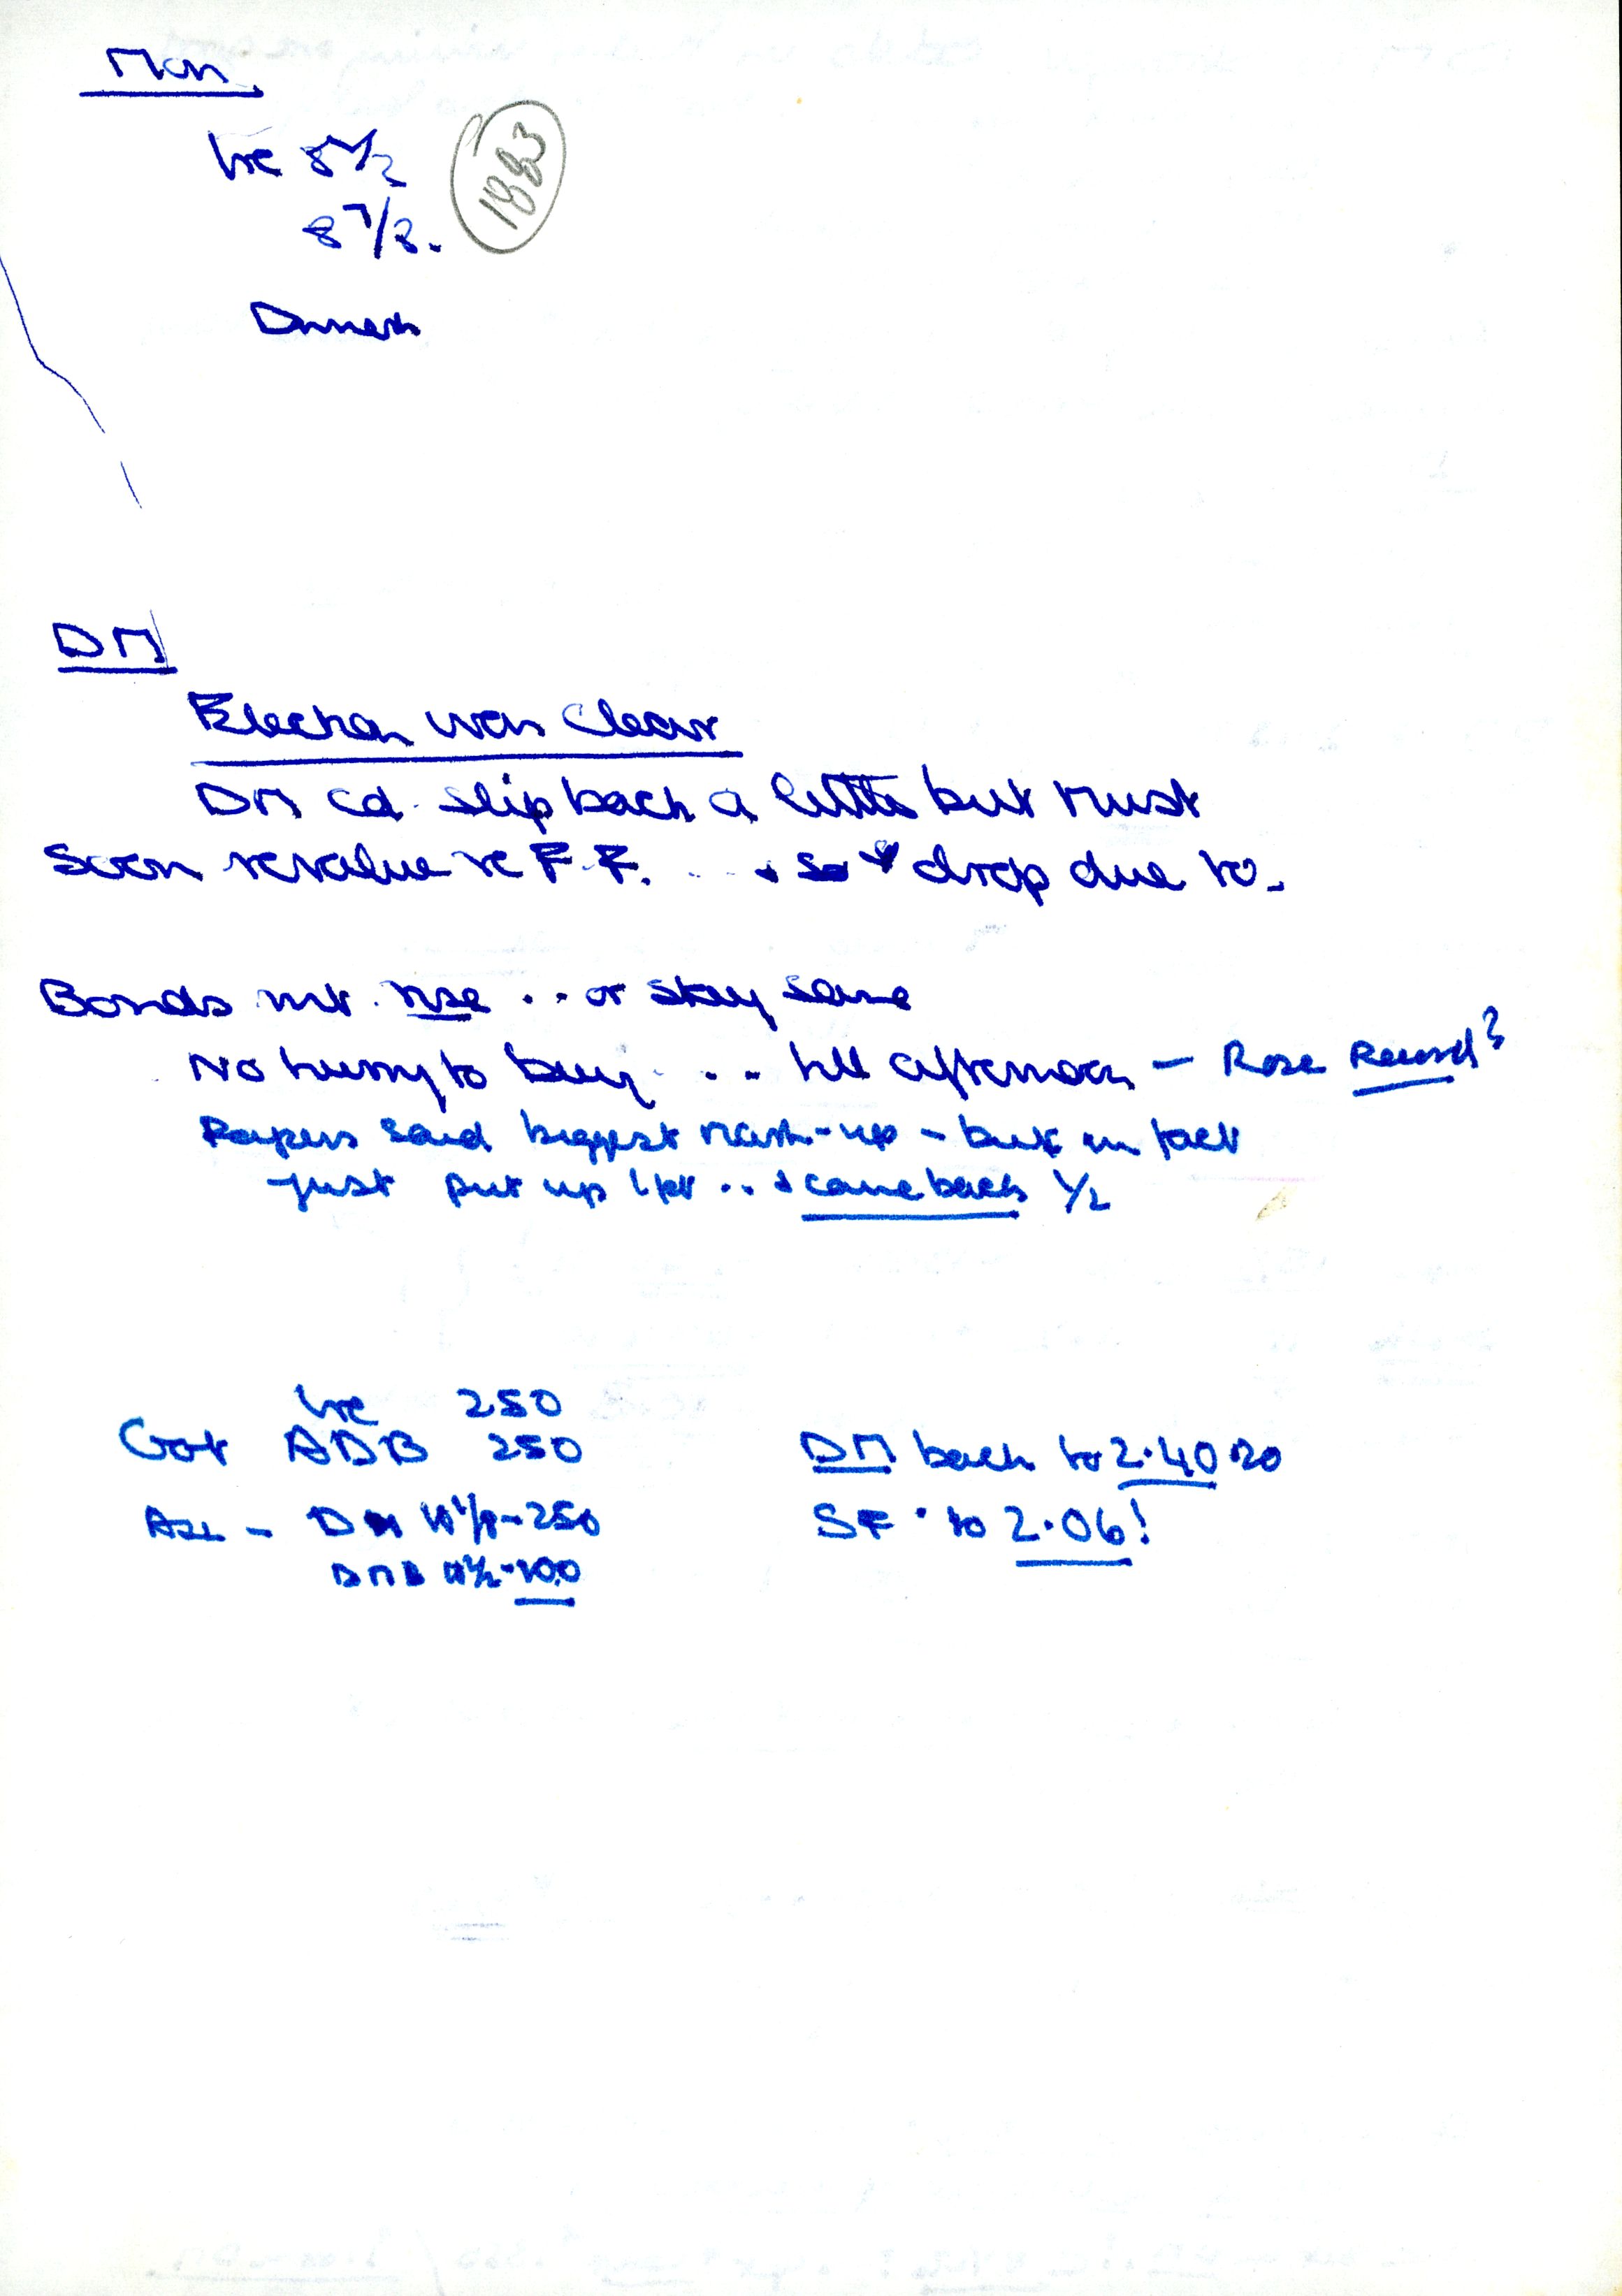 Mon
Ire 8 1/2
1883
8 7/8.
DM
Election won Clear
DM cd. slip back a little but must
soon revalue re F.F. ... so drop due to.
Bonds mt. rise ... or stay same
No hurry to buy ... till afternoon - Rose Record?
Papers said biggest mark-up - but in fact
just put up 1pt .. & came back 1/2
Ire 250
Got ADB 250
DM back to 2.4020
- 250
SF. to 2.06!
100